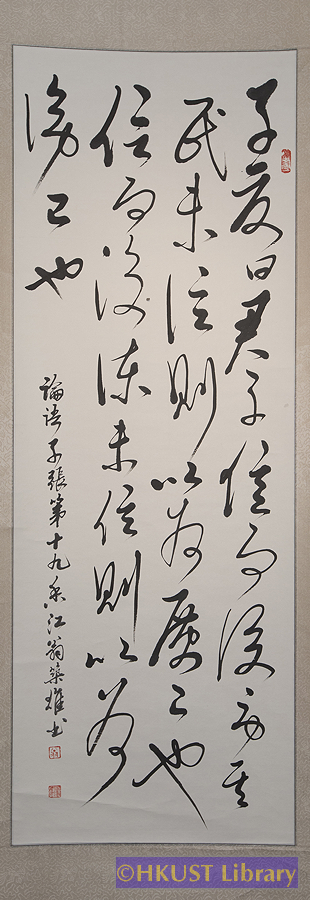 子夏曰君子信而後勞其
民未信則以為厲己也
信而後諫未信則以為
謗己也
論語子張第十九香江翁雄書
©HKUST Library